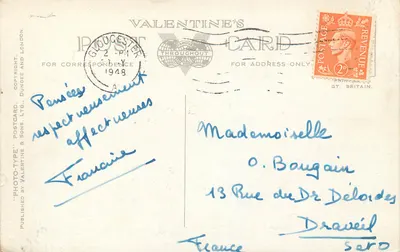 VALENTINE'S
POST CARD
FOR CORRESPONDENCE
THROUGHOUT
FOR ADDRESS ONLY.
GLOUCESTER
2
1948
POSTAGE
REVENUE
2
GT. BRITAIN.
"PHOTO-TYPE" POSTCARD. COPYRIGHT.
PUBLISHED BY VALENTINE & SONS, LTD., DUNDEE AND LONDON
Pensées
respectueusement
affectueuses
Francine
Mademoiselle
O. Bougain
13 Rue du Dr Délordes
Draveil
S et O
France